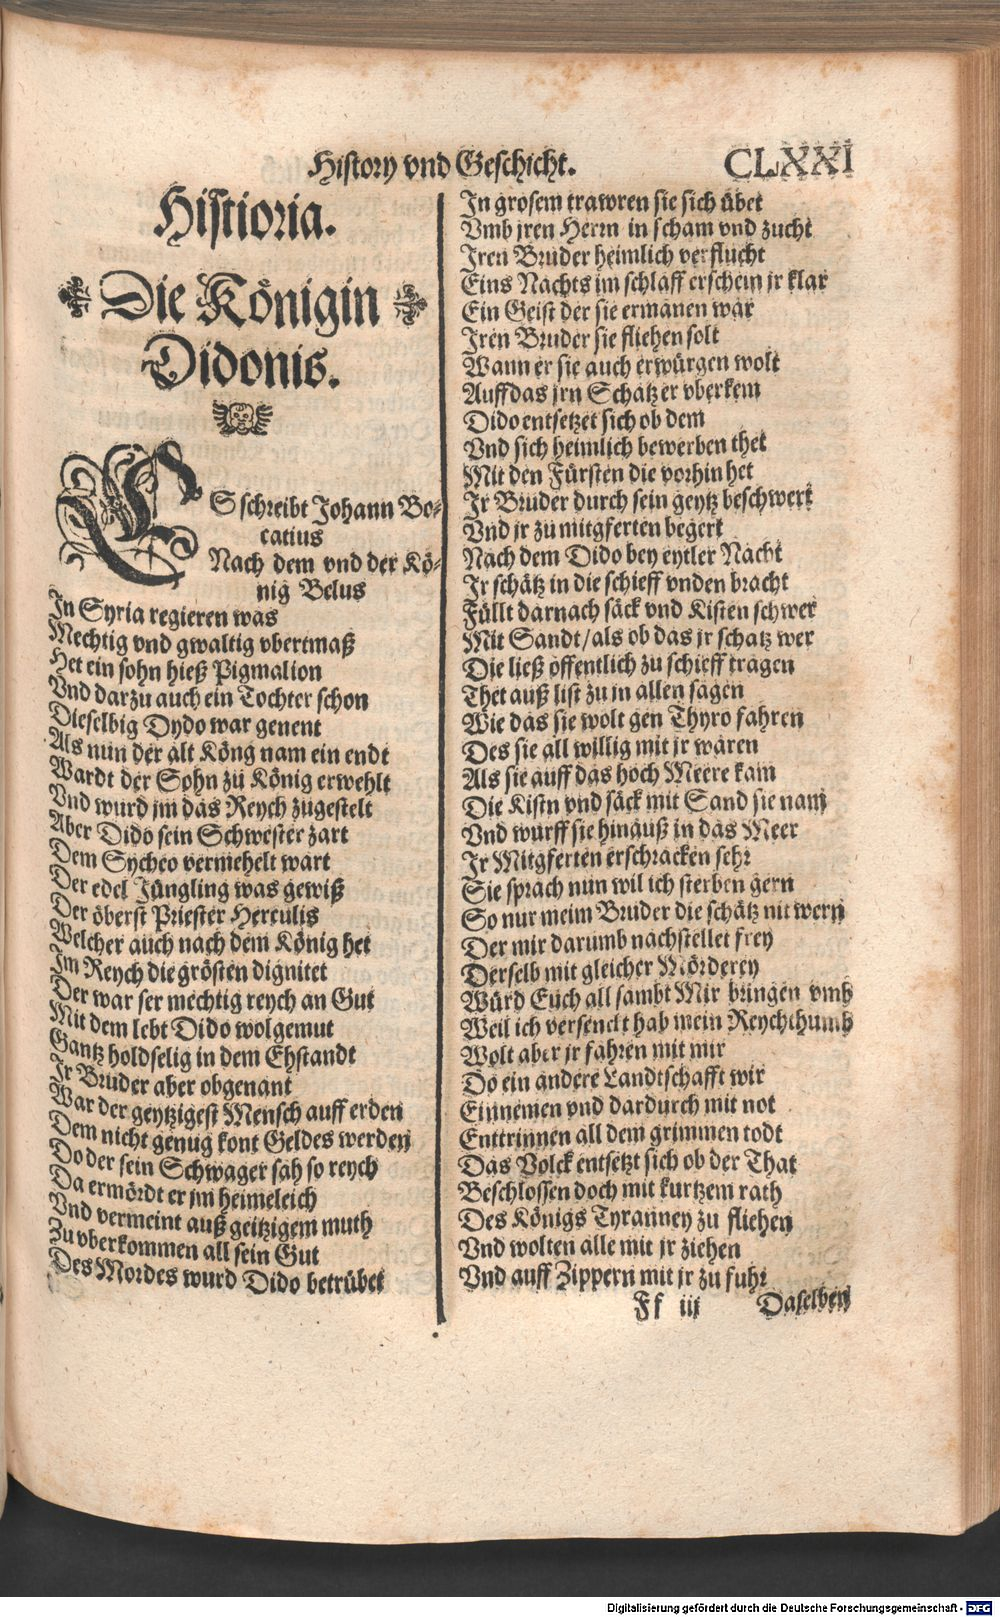 History vnd Geschicht.
CLXXI
Histioria.
Die Königin
Didonis.
ES schreibt Johann Bo-
catius
Nach dem vnd der Kö-
nig Belus
In Syria regieren was
Mechtig vnd gwaltig vbertmaß
Het ein sohn hieß Pigmalion
Vnd darzu auch ein Tochter schon
Dieselbig Dydo war genent
Als nun der alt Köng nam ein endt
Wardt der Sohn zu König erwehlt
Vnd wurd jm das Reych zugestelt
Aber Dido sein Schwester zart
Dem Sycheo vermehelt wart
Der edel Jüngling was gewiß
Der öberst Priester Herculis
Welcher auch nach dem König het
Im Reych die grösten dignitet
Der war ser mechtig reych an Gut
Mit dem lebt Dido wolgemut
Gantz holdselig in dem Ehstandt
Jr Bruder aber obgenant
War der geytzigest Mensch auff erden
Dem nicht genug kont Geldes werden
Do der sein Schwager sah so reych
Da ermördt er jm heimeleich
Vnd vermeint auß geitzigem muth
Zu vberkommen all sein Gut
Des Mordes wurd Dido betrübet
In grosem trawren sie sich übet
Vmb jren Herrn in scham vnd zucht
Iren Bruder heimlich verflucht
Eins Nachts im schlaff erschein jr klar
Ein Geist der sie ermanen war
Iren Bruder sie fliehen solt
Wann er sie auch erwürgen wolt
Auff das jrn Schatz er vberkem
Dido entsetzet sich ob dem
Vnd sich heimlich bewerben thet
Mit den Fürsten die vorhin het
Jr Bruder durch sein geytz beschwert
Vnd jr zu mitgferten begert
Nach dem Dido bey eytler Nacht
Jr schätz in die schieff vnden bracht
Füllt darnach säck vnd Kisten schwer
Mit Sandt/als ob das jr schatz wer
Die ließ öffentlich zu schieff tragen
Thet auß list zu jn allen sagen
Wie das sie wolt gen Thyro fahren
Des sie all willig mit jr waren
Als sie auff das hoch Meere kam
Die Kistn vnd säck mit Sand sie nam
Vnd wurff sie hinauß in das Meer
Jr Mitgferten erschracken sehr
Sie sprach nun wil ich sterben gern
So nur meim Bruder die schätz nit wern
Der mir darumb nachstellet frey
Derselb mit gleicher Mörderey
Würd Euch all sambt Mir bringen vmb
Weil ich versenckt hab mein Reychthumb
Wolt aber jr fahren mit mir
Do ein andere Landtschafft wir
Einnemen vnd dardurch mit not
Enttrinnen all dem grimmen todt
Das Volck entsetzt sich ob der That
Beschlossen doch mit kurtzem rath
Des Königs Tyranney zu fliehen
Vnd wolten alle mit jr ziehen
Vnd auff Zippern mit jr zu fuhr
Ff iii
Daselben
Digitalisierung gefördert durch die Deutsche Forschungsgemeinschaft - DFG